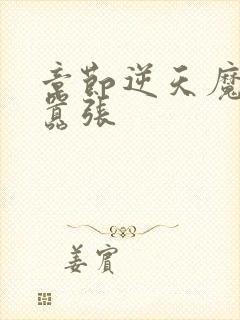 章節逆天魔
囂張
姜賓